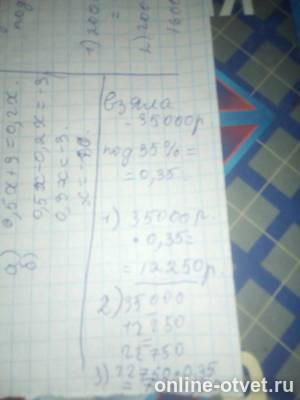 1) 200
=
2) 200
1600
а) 0,5х+9=0,2х.
б) 0,5х-0,2х=-9
0,3х=-9.
х=-30.
Взяла
- 35000р
под 35%=
=0,35.
1) 35000р.
• 0,35=
= 12250р.
2) 35000
12250
=
22750
3) 22750•0,35
online-otvet.ru